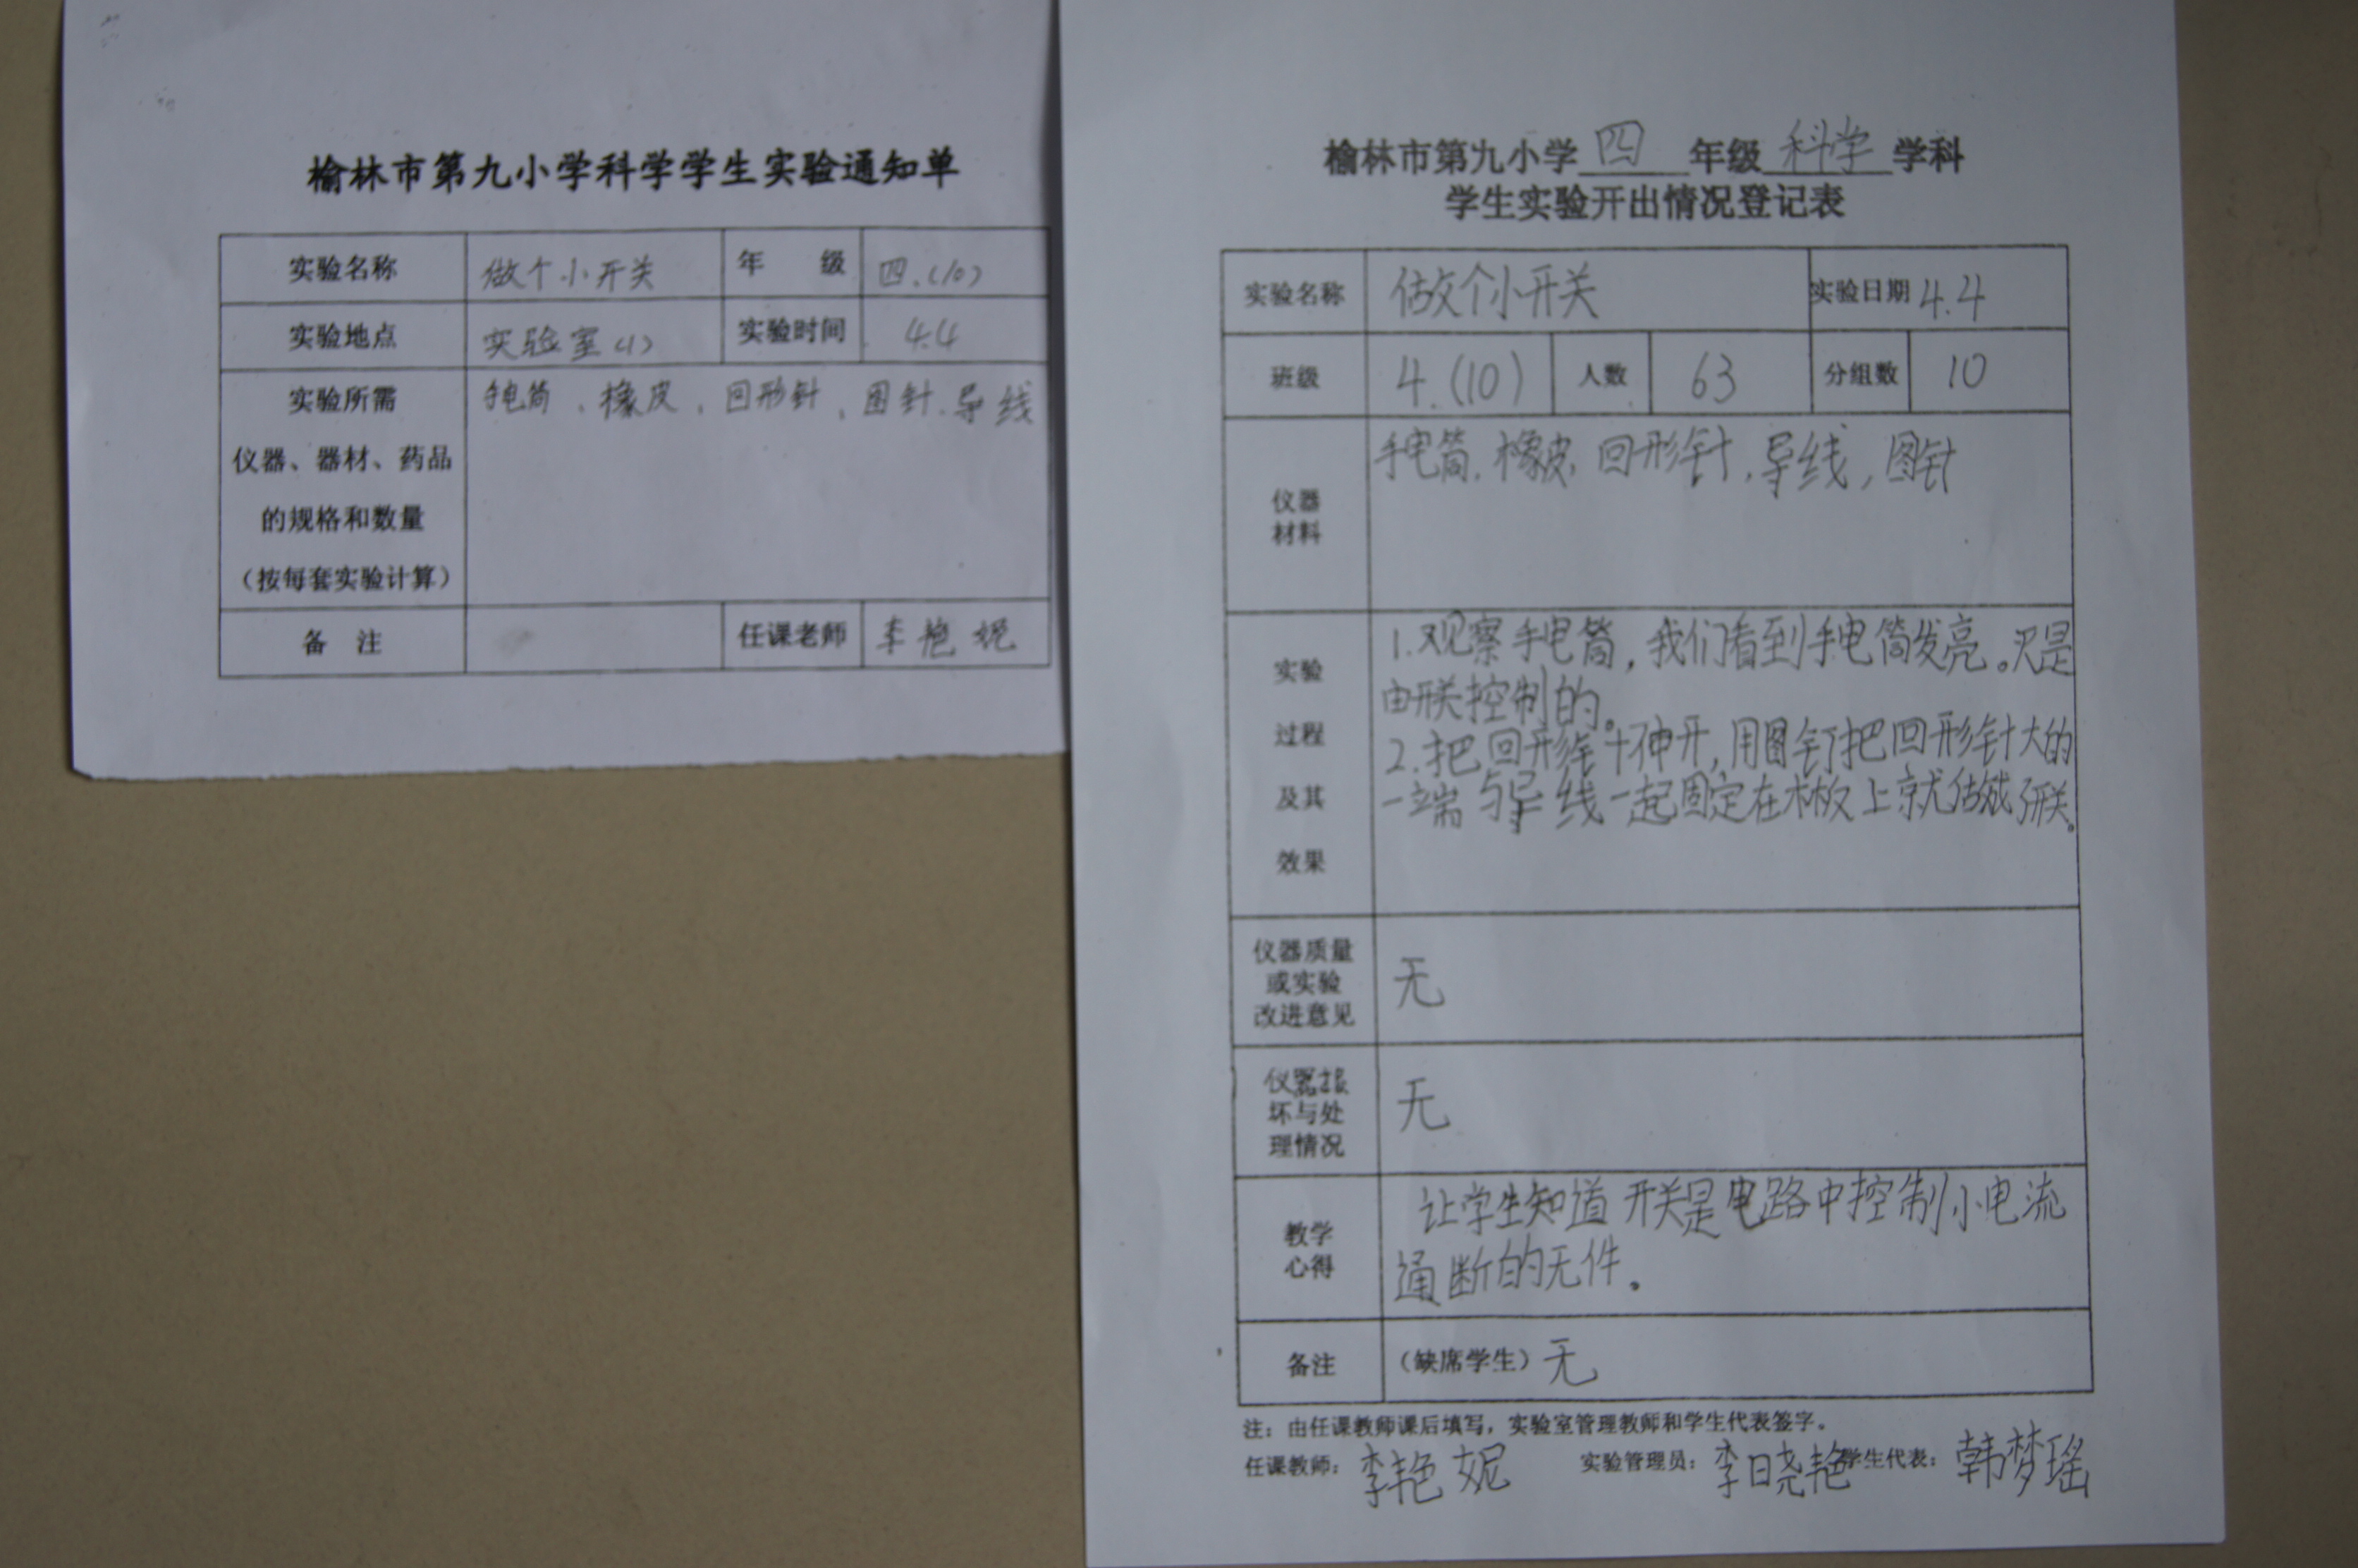 榆林市第九小学科学学生实验通知单
实验名称 做个小开关 年 级 四.(10)
实验地点 实验室(1) 实验时间 4.4
实验所需 手电筒、橡皮、回形针、图针.导线
仪器、器材、药品
的规格和数量
(按每套实验计算)
备 注 任课老师 李艳妮
榆林市第九小学 四 年级 科学 学科
学生实验开出情况登记表
实验名称 做个小开关 实验日期 4.4
班级 4.(10) 人数 63 分组数 10
仪器
材料
手电筒.橡皮.回形针.导线,图针
实验
过程
及其
效果
1.观察手电筒,我们看到手电筒发亮。灭是
由开关控制的。
2.把回形针伸开,用图钉把回形针大的
一端与导线一起固定在木板上就做成开关。
仪器质量
或实验
改进意见
无
仪器损
坏与处
理情况
无
教学
心得
让学生知道开关是电路中控制小电流
通断的元件。
备注 (缺席学生) 无
注:由任课教师课后填写,实验室管理教师和学生代表签字。
任课教师: 李艳妮 实验管理员: 李晓艳 学生代表: 韩梦瑶